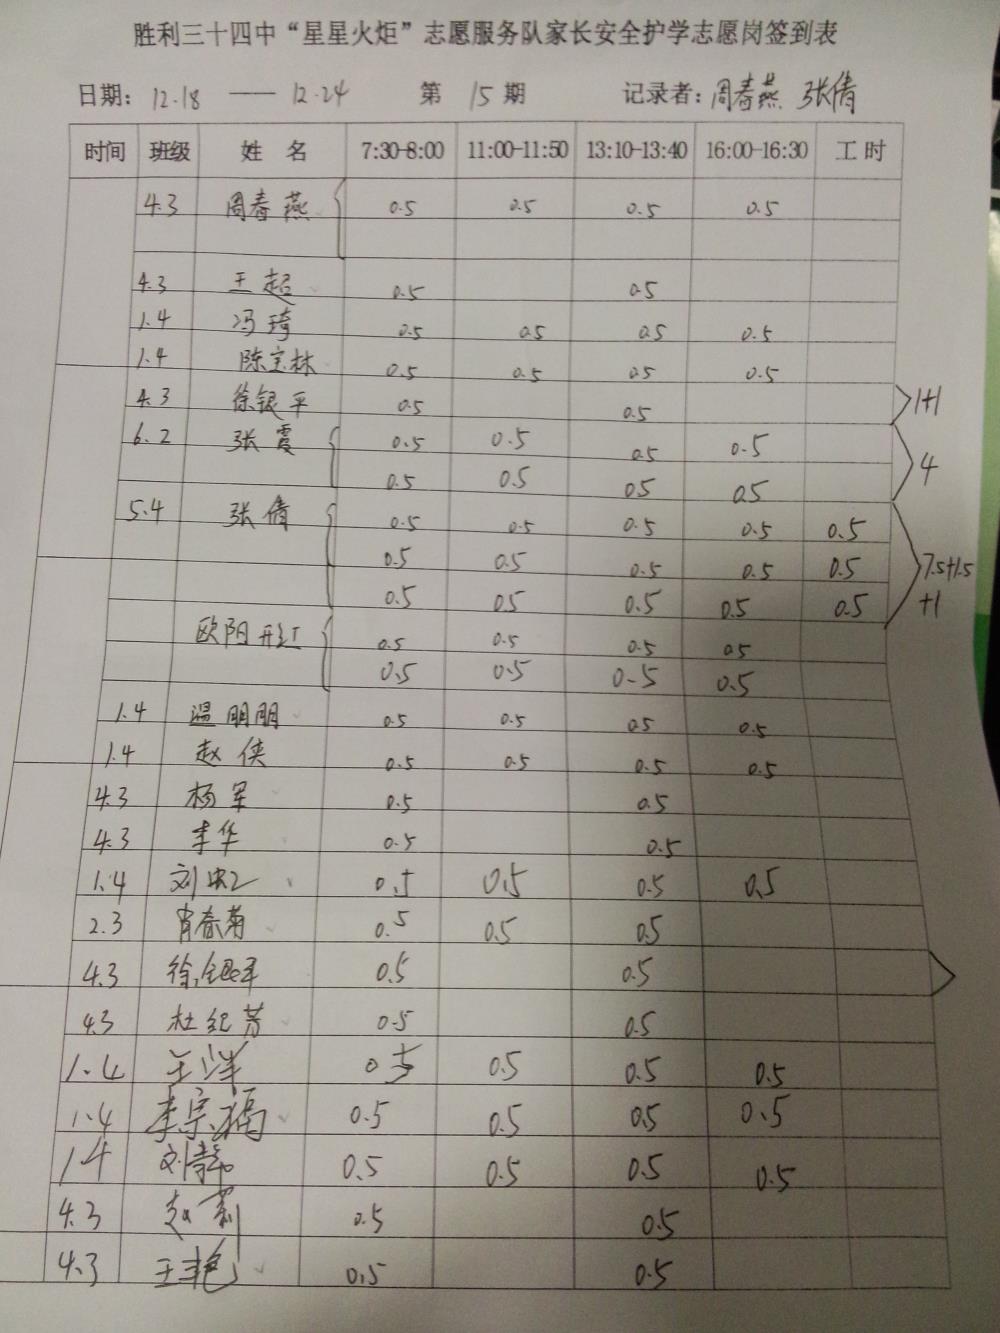 胜利三十四中“星星火炬”志愿服务队家长安全护学志愿岗签到表
日期: 12.18 —— 12.24 第 15 期 记录者: 周春燕 张倩
时间 班级 姓 名 7:30-8:00 11:00-11:50 13:10-13:40 16:00-16:30 工 时
4.3 周春燕 0.5 0.5 0.5 0.5
4.3 王超 0.5 0.5
1.4 冯琦 0.5 0.5 0.5 0.5
1.4 陈宝林 0.5 0.5 0.5 0.5
4.3 徐银平 0.5 0.5 1+1
6.2 张霞 0.5 0.5 0.5 0.5
0.5 0.5 0.5 0.5 4
5.4 张倩 0.5 0.5 0.5 0.5 0.5
0.5 0.5 0.5 0.5 0.5 7.5+1.5
0.5 0.5 0.5 0.5 0.5 +1
欧阳彤红 0.5 0.5 0.5 0.5
0.5 0.5 0.5 0.5
1.4 温朋朋 0.5 0.5 0.5 0.5
1.4 赵侠 0.5 0.5 0.5 0.5
4.3 杨军 0.5 0.5
4.3 李华 0.5 0.5
1.4 刘 0.5 0.5 0.5 0.5
2.3 肖春菊 0.5 0.5 0.5
4.3 徐银平 0.5 0.5
4.3 杜纪芳 0.5 0.5
1.4 王洋 0.5 0.5 0.5 0.5
1.4 李宗 0.5 0.5 0.5 0.5
1.4 刘静 0.5 0.5 0.5 0.5
4.3 赵莉 0.5 0.5
4.3 王艳 0.5 0.5